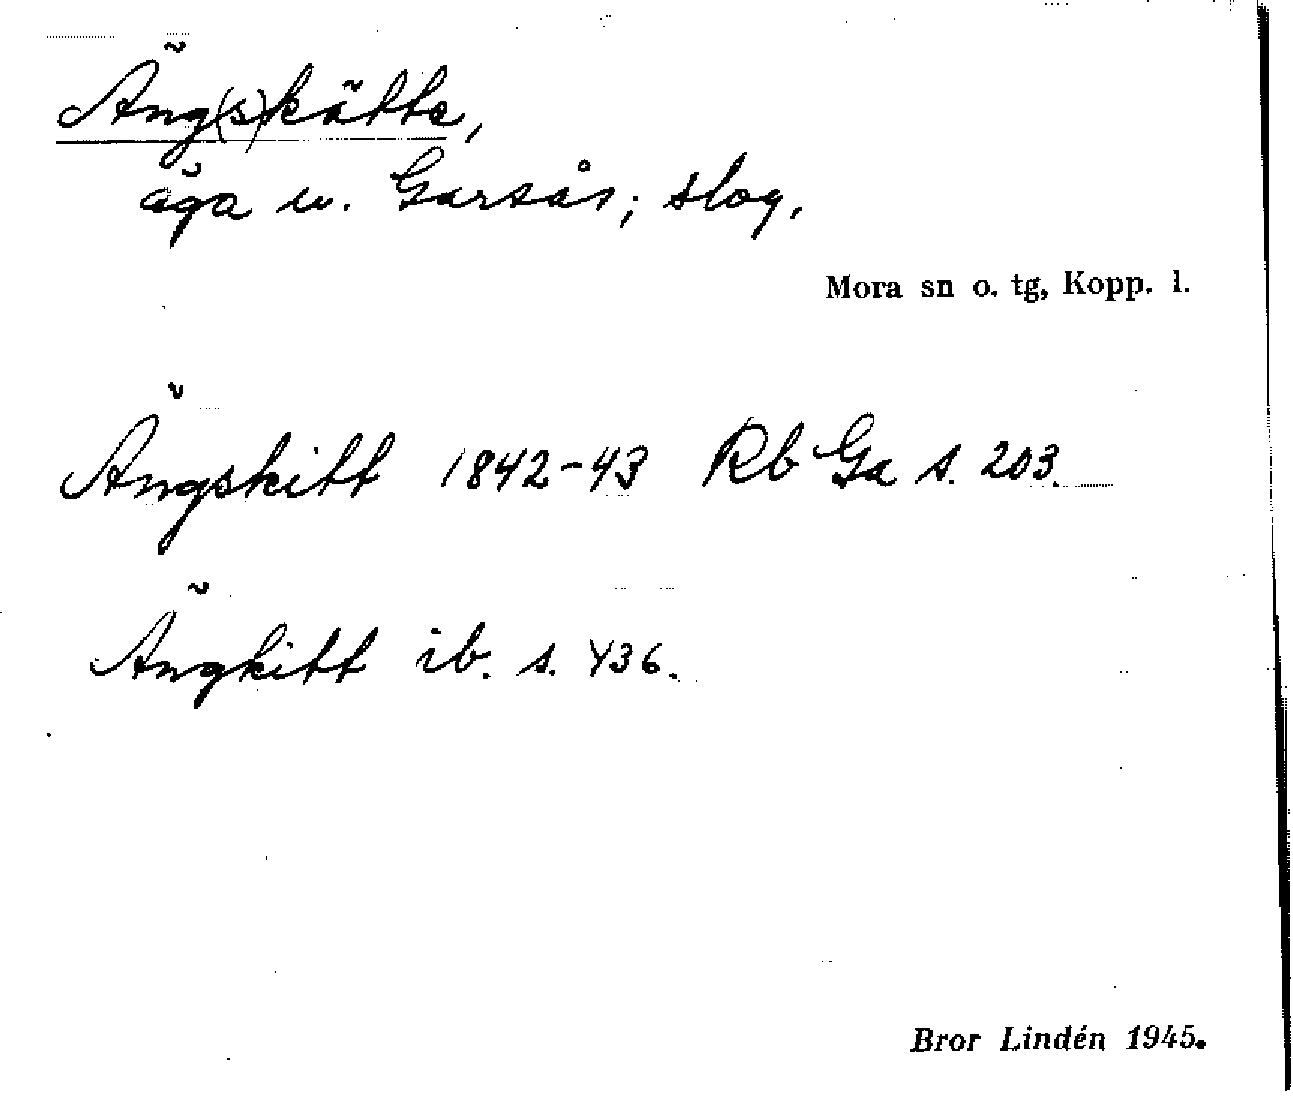 Äng(s)kätte,
äga u. Garsås; slog.
Mora sn o. tg, Kopp. l.
Ängskitt 1842-43 Rb Ga s. 203.
Ängkitt ib. s. 436.
Bror Lindén 1945.